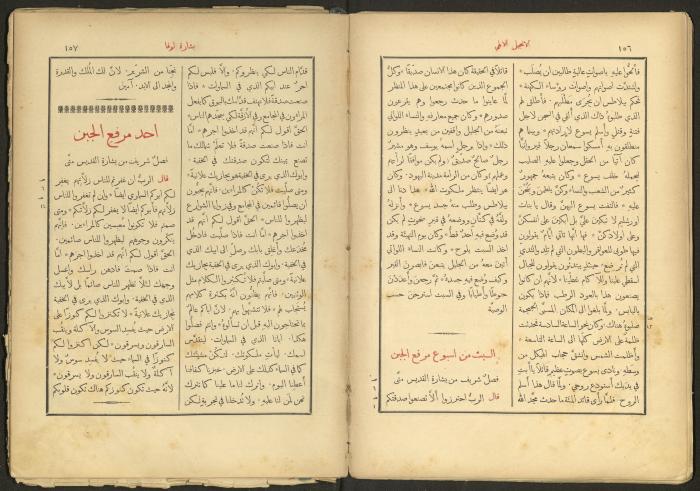 ١٥٦
الانجيل الالهي
فألحُّوا عليهِ باصواتٍ عاليةٍ طالبين ان يُصلَب *
واشتدَّت اصواتهم واصوات رؤساء الكهنة *
فحكم بيلاطس ان يُجرَى مطلبُهم * فأطلق لهم
الذي طلبوا ذاك الذي أُلقي في السجن لاجل
فتنةٍ وقتلٍ وأسلم يسوع لارادتهم * وبينما هم
منطلقون بهِ أمسكوا سمعان رجلًا قيروانيًّا
كان آتيًا من الحقل وجعلوا عليهِ الصليب
ليحملهُ خلف يسوع * وكان يتبعهُ جمهورٌ
كثيرٌ من الشعب والنساء وكنَّ يلطمنَ وينُحنَ
عليهِ * فالتفت يسوع اليهنَّ وقال يا بنات
اورشليم لا تبكين عليَّ بل ابكين على انفسكنَّ
وعلى اولادكنَّ * فها انها تأتي ايامٌ تقولون
فيها طوبى للعواقر والبطون التي لم تلد والثديِّ
التي لم تُرضِع * حينئذٍ يبتدئون يقولون للجبال
اسقطي علينا وللآكام غطّينا * لانهُ ان كانوا
يصنعون هذا بالعود الرطب فاذا يكون
باليابس * ولمَّا بلغوا الى المكان المسمَّى الجمجمة
صلبوهُ هناك * وكان نحو الساعة السادسة فحدثت
ظلمة على الارض كلها الى الساعة التاسعة *
واظلمت الشمس وانشقَّ حجاب الهيكل من
وسطهِ * ونادى يسوع بصوتٍ عظيمٍ قائلًا يا أبتِ
في يديك أستودع روحي * ولمَّا قال هذا أسلم
الروح * فلمَّا رأى قائد المئة ما حدث مجَّد الله
قائلًا في الحقيقة كان هذا الانسان صدّيقًا * وكلُّ
الجموع الذين كانوا مجتمعين على هذا المنظر
لمَّا عاينوا ما حدث رجعوا وهم يقرعون
صدورهم * وكان جميع معارفهِ والنساء اللواتي
تبعنهُ من الجليل واقفين من بعيدٍ ينظرون
ذلك * واذا برجلٍ اسمهُ يوسف وهو مشيرٌ
رجلٌ صالحٌ صدّيقٌ * ولم يكن موافقًا لرأيهم
وعملهم وكان من الرامة مدينة اليهود * وكان
هو ايضًا ينتظر ملكوت الله * هذا دنا الى
بيلاطس وطلب منهُ جسد يسوع * وأنزلهُ
ولفَّهُ في كتَّانٍ ووضعهُ في قبرٍ منحوتٍ لم يكن
قد وُضع فيهِ احدٌ قطُّ * وكان يوم التهيئة وقد
اخذ السبت يلوح * وكانت النساء اللواتي
أتين معهُ من الجليل يتبعن فابصرن القبر
وكيف وُضع فيهِ جسدهُ * ثمَّ رجعن وأعددن
حنوطًا واطيابًا وفي السبت استرحن حسب
الوصيَّة
السبت من اسبوع مرفع الجبن
فصلٌ شريف من بشارة القديس متَّى
قال الربُّ احترزوا ألَّا تصنعوا صدقتكم
بشارة لوقا
١٥٧
قدَّام الناس لكي ينظروكم * والَّا فليس لكم
اجرٌ عند ابيكم الذي في السماوات * فاذا
صنعت صدقةً فلا تهتف قدَّامك بالبوق كما يفعل
المراءون في المجامع وفي الأزقَّة لكي يمجّدهم الناس *
الحقَّ اقول لكم انهم قد اخذوا اجرهم * امَّا
انت فاذا صنعت صدقةً فلا تعلم شمالك ما
تصنع يمينك لتكون صدقتك في الخفية *
وابوك الذي يرى في الخفية هو يجازيك علانيةً *
ومتى صلَّيت فلا تكن كالمرائين * فانهم يحبُّون
ان يصلُّوا قيامًا في المجامع وفي زوايا الشوارع
ليظهروا للناس * الحقَّ اقول لكم انهم قد
اخذوا اجرهم * امَّا انت فاذا صلَّيت فادخل
مخدعك وأغلق بابك وصلِّ الى ابيك الذي
في الخفية * وابوك الذي يرى في الخفية يجازيك
علانيةً * ومتى صلَّيتم فلا تكثروا الكلام مثل
الوثنيين * فانهم يظنُّون أنَّهُ بكثرة كلامهم
يستجاب لهم * فلا تتشبَّهوا بهم * لأنَّ اباكم عالمٌ
بما تحتاجون اليهِ قبل ان تسألوهُ * وانتم فصلُّوا
هكذا * ابانا الذي في السماوات * ليتقدَّس
اسمك * ليأتِ ملكوتك * لتكن مشيئتك
كما في السماء كذلك على الارض * خبزنا كفافنا
أعطنا اليوم * واترك لنا ما علينا كما نترك
نحن لمن لنا عليهِ * ولا تُدخلنا في تجربةٍ لكن
نجِّنا من الشرير * لانَّ لك المُلك والقدرة
والمجد الى الابد * آمين
احد مرفع الجبن
فصلٌ شريف من بشارة القديس متَّى
قال الربُّ ان غفرتم للناس زلّاتهم يغفر
لكم ابوكم السماوي ايضًا * وإن لم تغفروا للناس
زلّاتهم فأبوكم ايضًا لا يغفر لكم زلّاتكم * ومتى
صمتم فلا تكونوا معبسين كالمرائين * فانهم
ينكّرون وجوههم ليظهروا للناس صائمين *
الحقَّ اقول لكم انهم قد اخذوا اجرهم * امَّا
انت فاذا صمت فادهن رأسك واغسل
وجهك * لئلَّا تظهر للناس صائمًا بل لأبيك
الذي في الخفية * وابوك الذي يرى في الخفية
يجازيك علانيةً * لا تكنزوا لكم كنوزًا على
الارض حيث يُفسد السوس والآكلة وينقب
السارقون ويسرقون * لكن اكنزوا لكم
كنوزًا في السماء حيث لا يُفسد سوسٌ ولا
آكلةٌ ولا ينقب السارقون ولا يسرقون *
لأنهُ حيث تكون كنوزكم هناك تكون قلوبكم